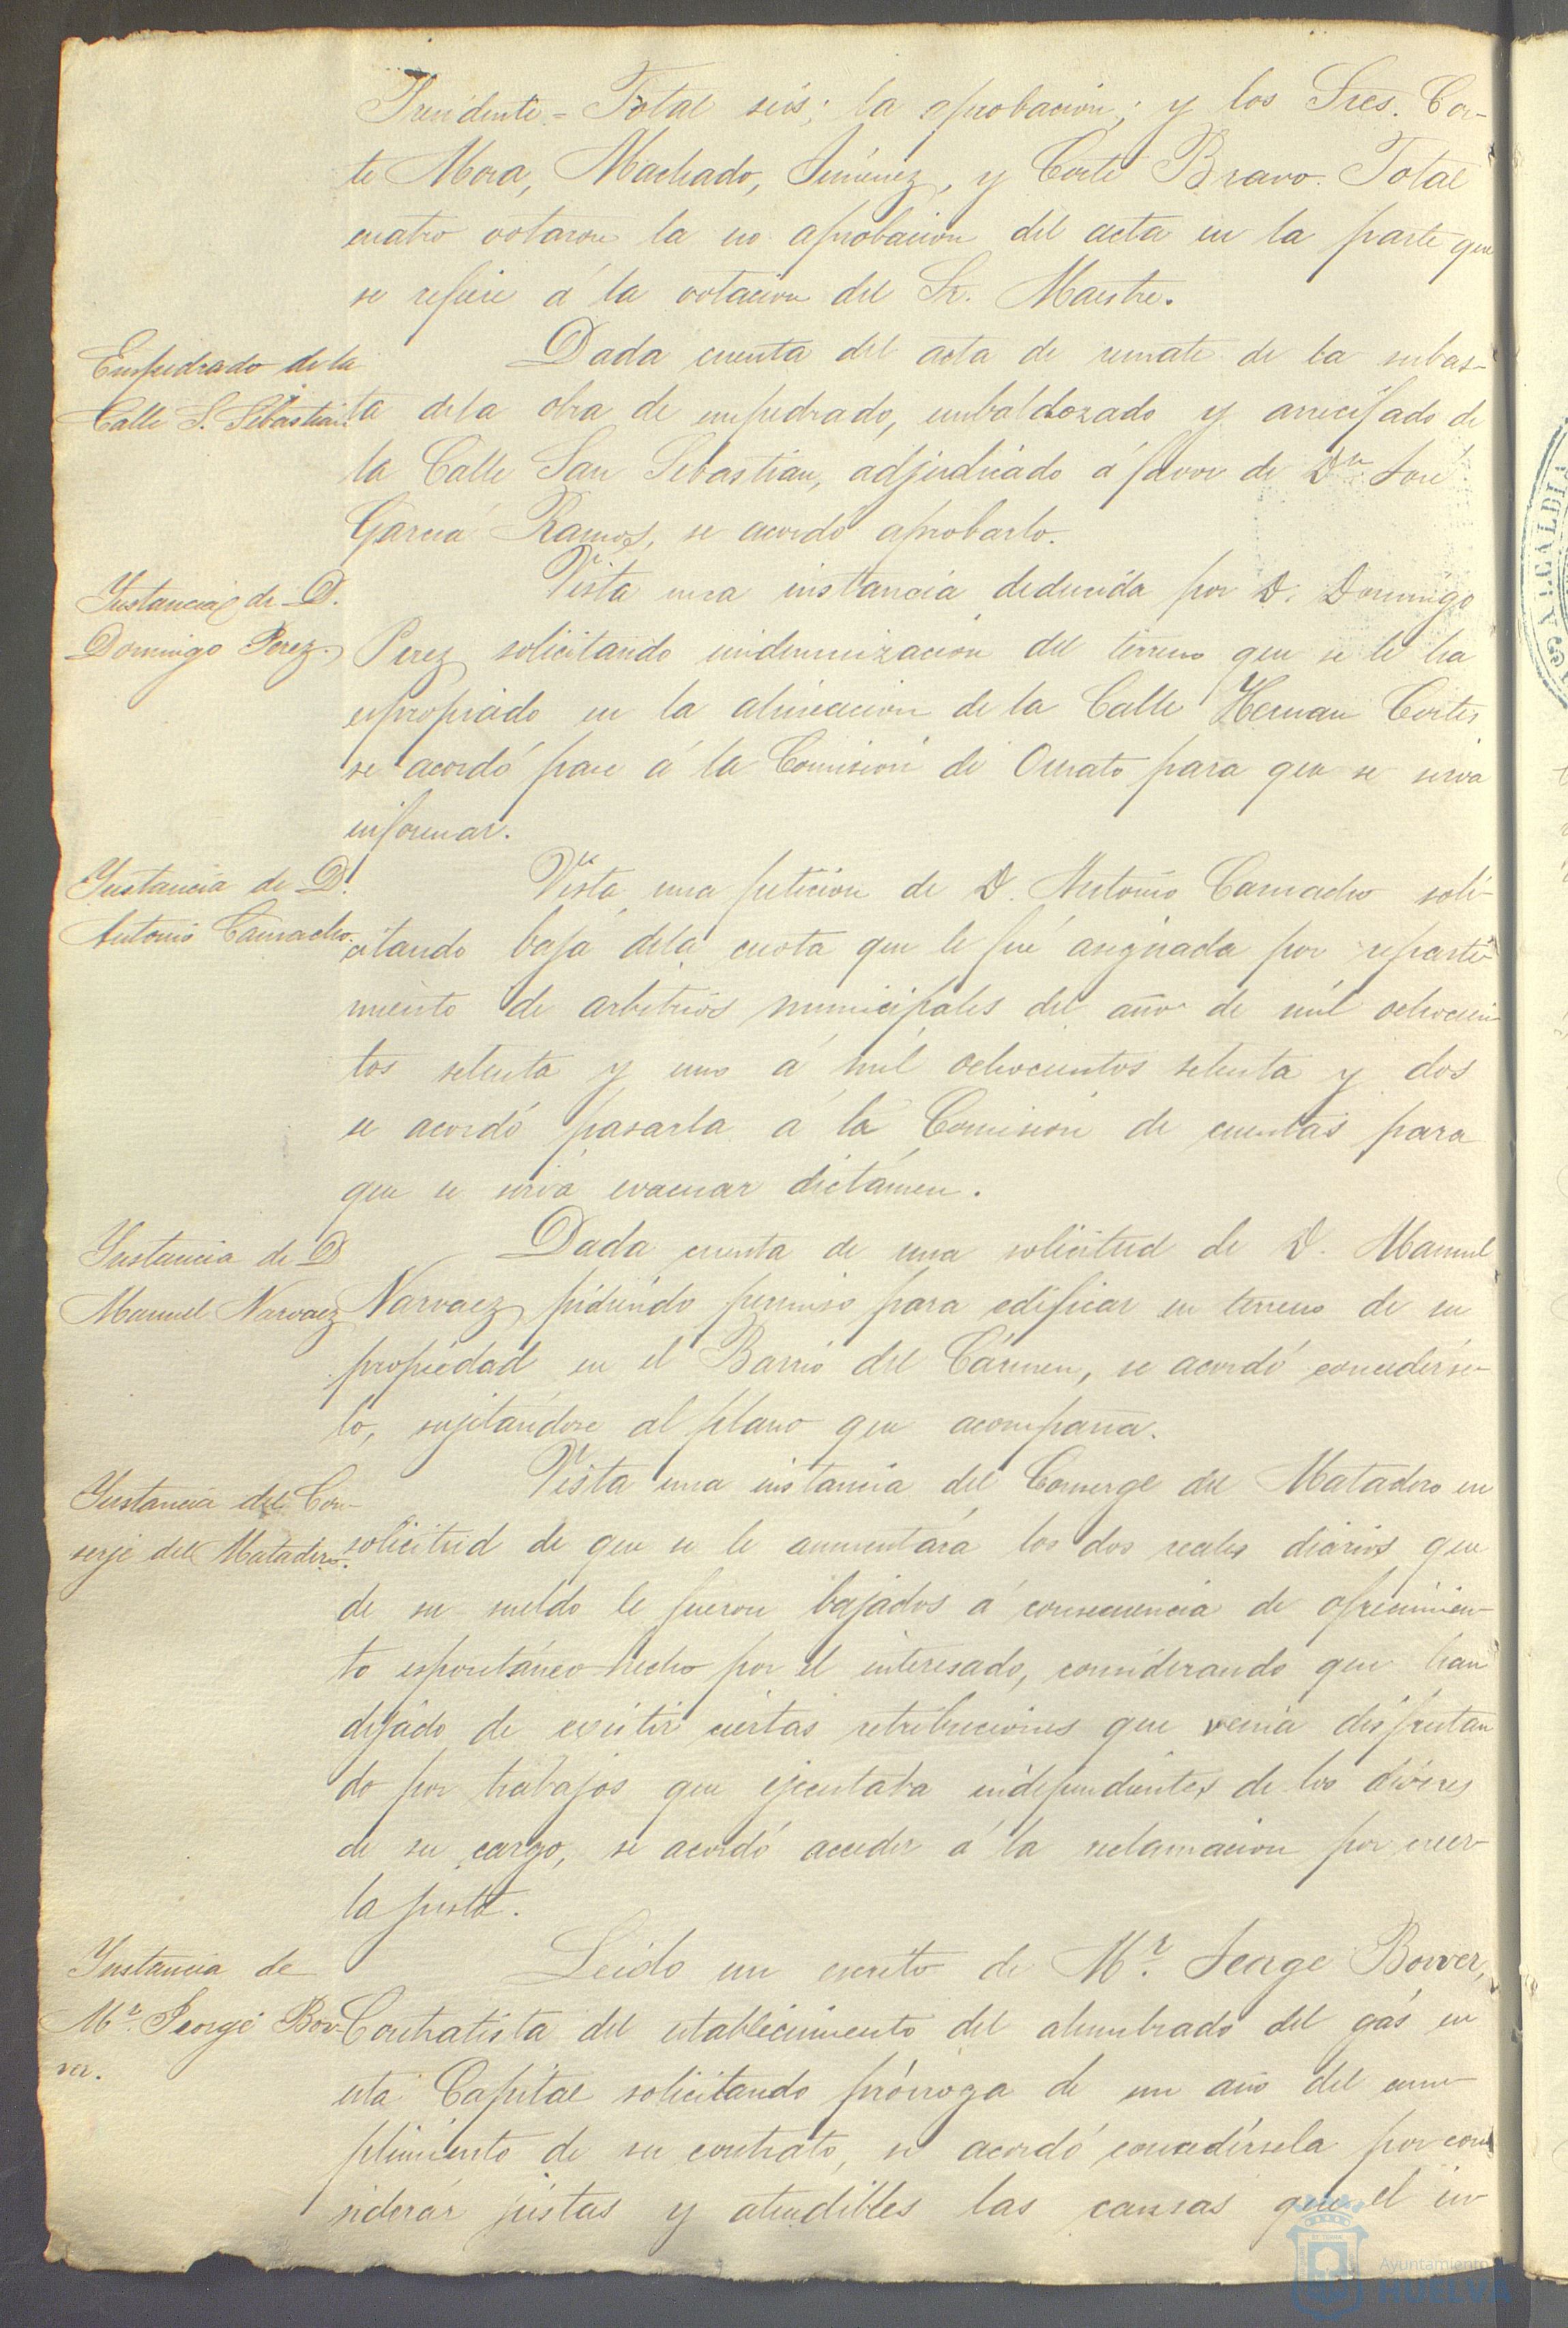 Presidente = Total seis; la aprobacion; y los Sres. Cor-
te Mora, Machado, Jiménez, y Corte Bravo. Total
cuatro votaron la no aprobacion del acta en la parte que
se refiere á la votacion del Sr. Maestre.
Empedrado de la
Calle S. Sebastian.
Dada cuenta del acta de remate de la subas-
ta de la obra de empedrado, embaldozado y arrecifado de
la Calle San Sebastian, adjudicado á favor de Dn. José
Garcia Ramos, se acordó aprobarlo.
Instancia de D.
Domingo Perez.
Vista una instancia deducida por D. Domingo
Perez solicitando indemnizacion del terreno que se le ha
espropiado en la alineacion de la Calle Hernan Cortes
se acordó pase á la Comision de Ornato para que se sirva
informar.
Instancia de D.
Antonio Camacho.
Vista una peticion de D. Antonio Camacho soli-
citando baja de la cuota que le fué asignada por reparti-
miento de arbitrios municipales del año de mil ochocien-
tos setenta y uno á mil ochocientos setenta y dos
se acordó pasarla á la Comision de cuentas para
que se sirva evacuar dictámen.
Instancia de D
Manuel Narvaez
Dada cuenta de una solicitud de D. Manuel
Narvaez pidiendo permiso para edificar en terreno de su
propiedad en el Barrio del Cármen, se acordó concederse-
lo, sujetándose al plano que acompaña.
Instancia del Con-
serje del Matadero.
Vista una instancia del Conserge del Matadero en
solicitud de que se le aumentára los dos reales diarios que
de su sueldo le fueron bajados á consecuencia de ofrecimien-
to espontáneo hecho por el interesado, considerando que han
dejado de existir ciertas retribuciones que venia disfrutan
do por trabajos que ejecutaba independientes de los déveres
de su cargo, se acordó acceder á la reclamacion por creer-
la justa.
Instancia de
Mr. George Bow-
ver.
Leido un escrito de Mr. George Bowver,
Contratista del establecimiento del alumbrado del gás en
esta Capital solicitando prórroga de un año del cum-
plimiento de su contrato, se acordó concedérsela por con-
siderar justas y atendibles las causas que el in-
Ayuntamiento
HUELVA
ALCALDIA